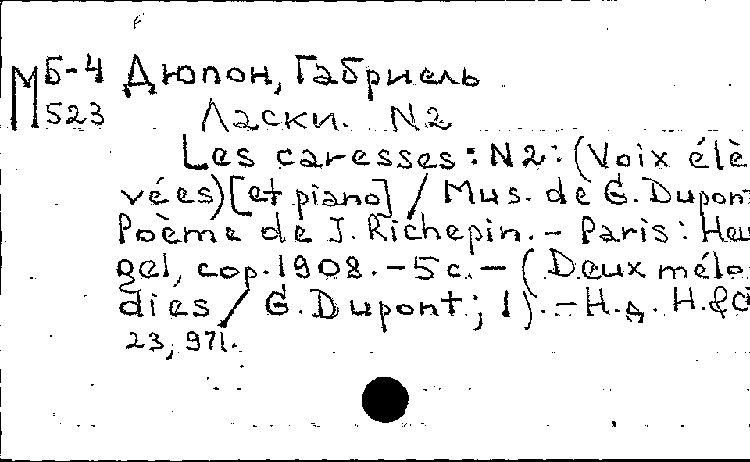 М Б-4 Дюпон, Габриель
523 Ласки. N2
Les caresses: N2: (Voix élè-
vées) [et piano] / Mus. de G. Dupont
Poème de J. Richepin. - Paris: Heu-
gel, cop. 1908. - 5 c. - (Deux mélo-
dies / G. Dupont; 1). - Н.д. H.&C
23,971.